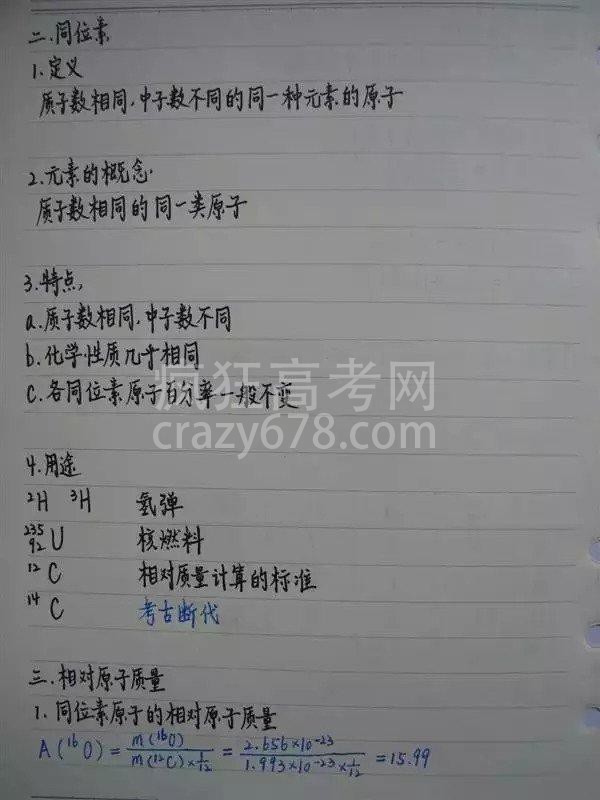 二.同位素
1.定义
质子数相同,中子数不同的同一种元素的原子
2.元素的概念.
质子数相同的同一类原子
3.特点,
a.质子数相同,中子数不同
b.化学性质几乎相同
c.各同位素原子百分率一般不变
疯狂高考网
crazy678.com
4.用途
²H ³H 氢弹
²³⁵₉₂U 核燃料
¹²C 相对质量计算的标准
¹⁴C 考古断代
三.相对原子质量
1.同位素原子的相对原子质量
A(¹⁶O) = m(¹⁶O) / m(¹²C)×1/12 = 2.656×10⁻²³ / 1.993×10⁻²³×1/12 = 15.99